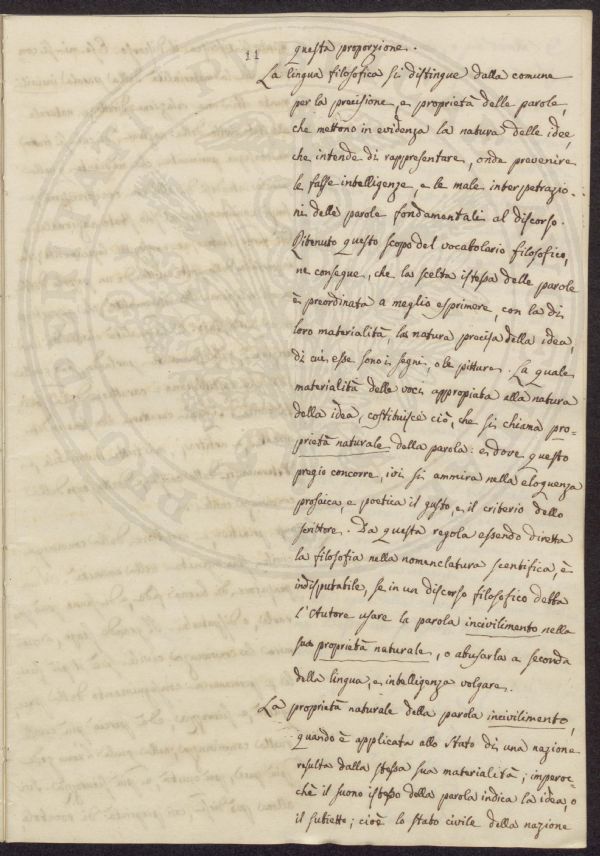 11
questa proporzione.
La lingua filosofica si distingue dalla comune
per la precisione, e proprietà delle parole,
che mettono in evidenza la natura delle idee,
che intende di rappresentare, onde prevenire
le false intelligenze, e le male interpetrazio-
ni delle parole fondamentali al discorso.
Ottenuto questo scopo del vocabolario filosofico,
ne consegue, che la scelta istessa delle parole
è preordinata a meglio esprimere, con la di
loro materialità, la natura precisa della idea,
di cui esse sono i segni, o le pitture. La quale
materialità delle voci appropiata alla natura
della idea, costituisce ciò, che si chiama pro-
prietà naturale della parola: e dove questo
pregio concorre, ivi si ammira nella eloquenza
prosaica, e poetica il gusto, e il criterio dello
scrittore. Da questa regola essendo diretta
la filosofia nella nomenclatura scentifica, è
indisputabile, se in un discorso filosofico debba
l'Autore usare la parola incivilimento nella
sua proprietà naturale, o abusarla a seconda
della lingua, e intelligenza volgare.
La proprietà naturale della parola incivilimento,
quando è applicata allo stato di una nazione
resulta dalla stessa sua materialità; imperoc-
chè il suono istesso della parola indica la idea, o
il subietto; cioè lo stato civile della nazione